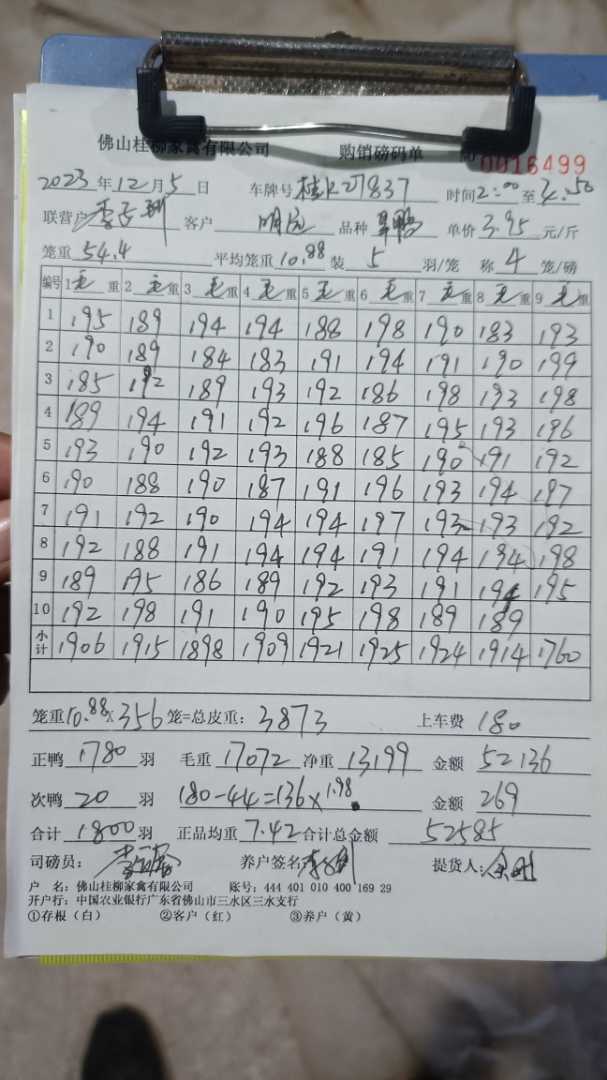 佛山桂柳家禽有限公司 购销磅码单 No 0016499
2023年12月5日 车牌号 桂K27837 时间2:00至4:50
联营户 客户 明远 品种 旱鸭 单价3.95元/斤
笼重 54.4 平均笼重10.88 装 5 羽/笼 称 4 笼/磅
编号 1毛重 2毛重 3毛重 4毛重 5毛重 6毛重 7毛重 8毛重 9毛重
1 195 189 194 194 188 198 190 183 193
2 190 189 184 183 191 194 191 190 199
3 185 192 189 193 192 186 198 193 198
4 189 194 191 192 196 187 195 193 196
5 193 190 192 193 188 185 190 191 192
6 190 188 190 187 191 196 193 194 197
7 191 192 190 194 194 197 193 193 192
8 192 188 191 194 194 191 194 194 198
9 189 195 186 189 192 193 191 194 195
10 192 198 191 190 195 198 189 189
小计 1906 1915 1898 1909 1921 1925 1924 1914 1760
笼重10.88×356笼=总皮重:3873 上车费 180
正鸭 1780 羽 毛重 17072 净重 13199 金额 52136
次鸭 20 羽 180-44=136×1.98 金额 269
合计 1800羽 正品均重 7.42 合计总金额 52585
司磅员: 养户签名 提货人:
户 名:佛山桂柳家禽有限公司 账号:444 401 010 400 169 29
开户行:中国农业银行广东省佛山市三水区三水支行
①存根(白) ②客户(红) ③养户(黄)